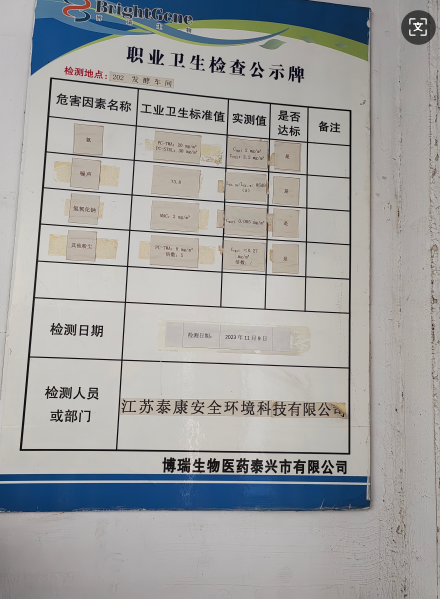 BrightGene
职业卫生检查公示牌
检测地点：202 发酵车间
危害因素名称 工业卫生标准值 实测值 是否达标 备注
氨 PC-TWA：20 mg/m³ 是
PC-STEL：30 mg/m³
噪声 是
氢氧化钠 MAC：2 mg/m³ 是
其他粉尘 PC-TWA：8 mg/m³ 是
检测日期 检测日期： 2023年11月9日
检测人员或部门 江苏泰康安全环境科技有限公司
博瑞生物医药泰兴市有限公司